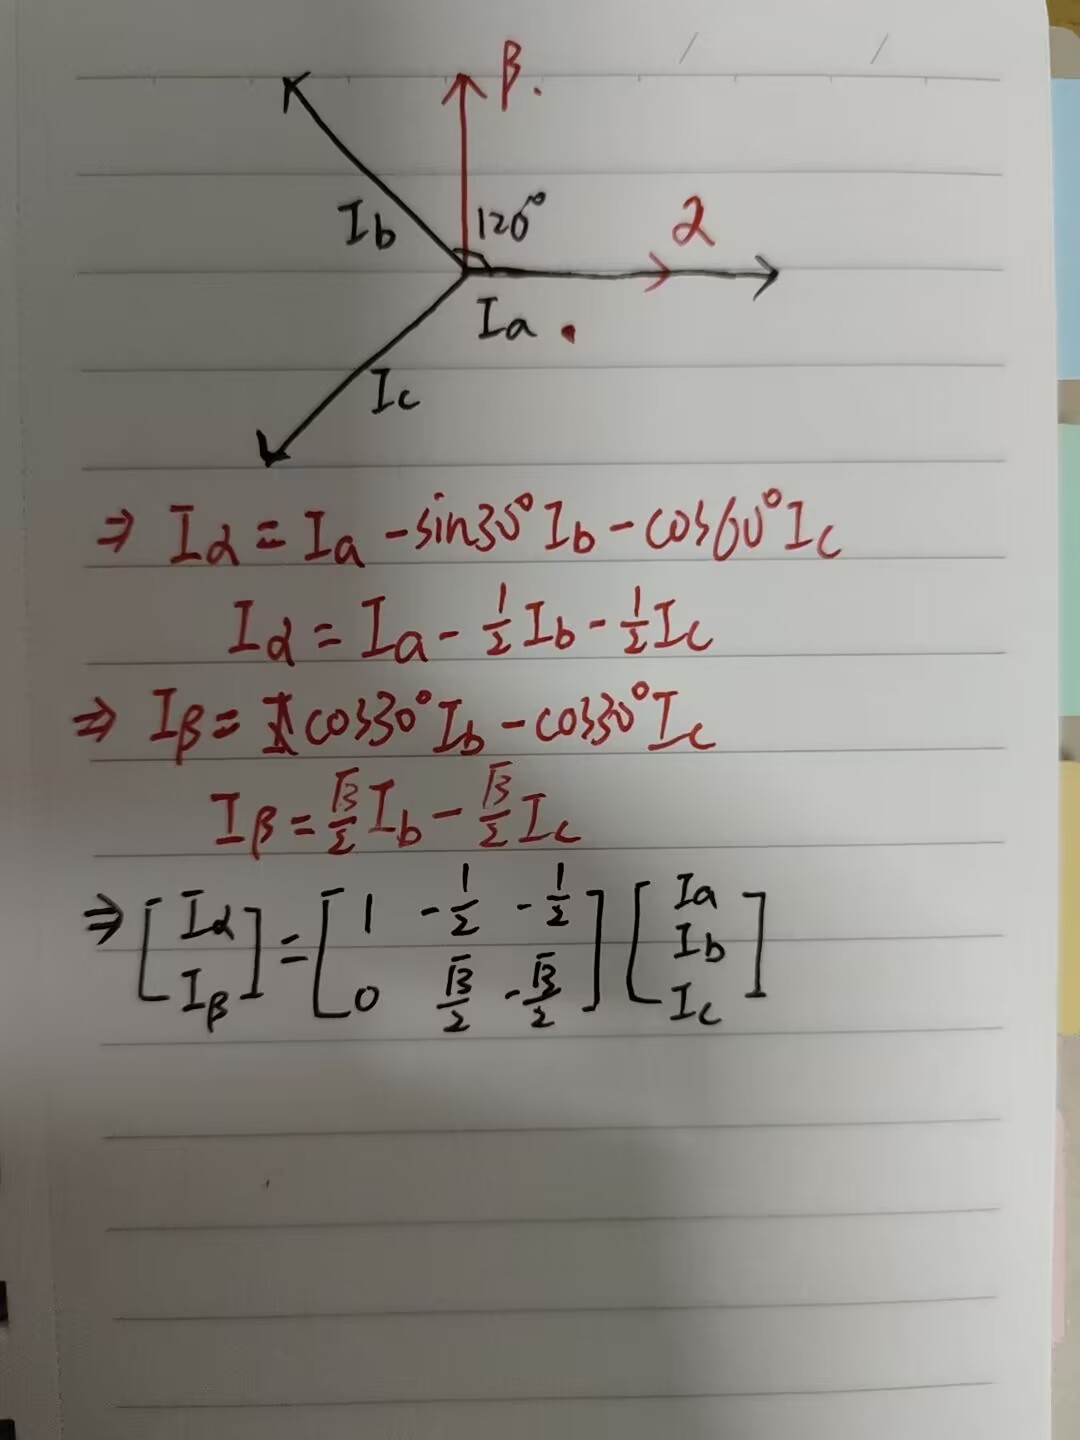 β.
120°
α
Ib
Ia
Ic
⇒ Iα = Ia - sin30° Ib - cos60° Ic
Iα = Ia - 1/2 Ib - 1/2 Ic
⇒ Iβ = cos30° Ib - cos30° Ic
Iβ = √3/2 Ib - √3/2 Ic
⇒ [Iα Iβ] = [1 -1/2 -1/2 0 √3/2 -√3/2] [Ia Ib Ic]